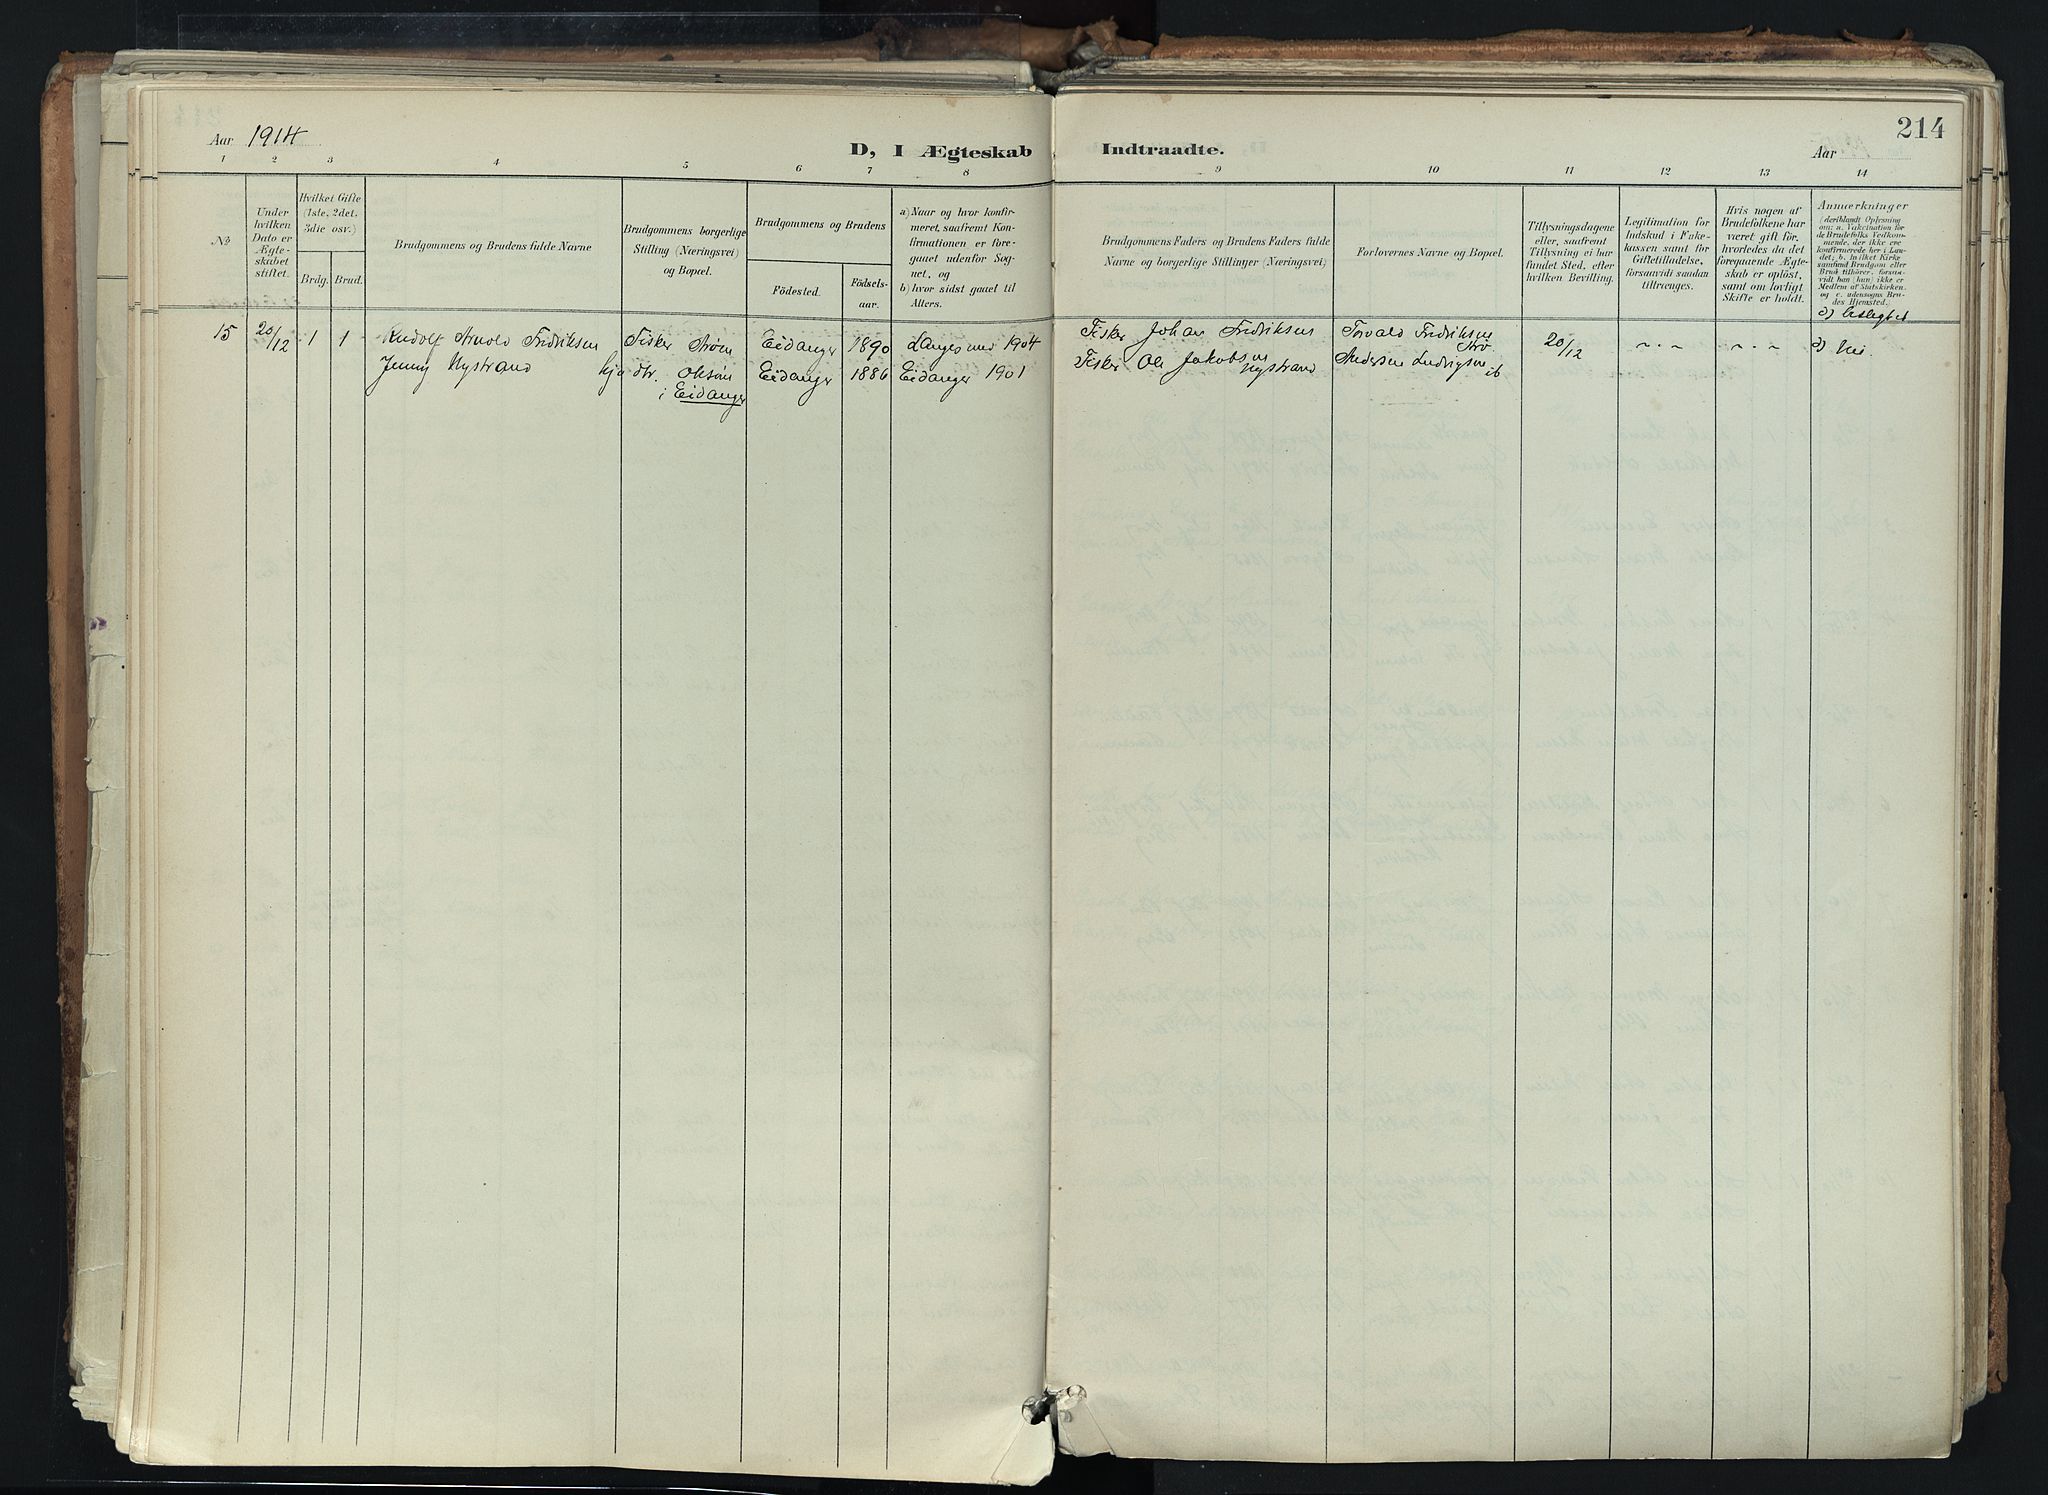 Aar 1914
D, I Ægteskab Indtraadte.
Aar
214
1 2 3 4 5 6 7 8 9 10 11 12 13 14
No
Under hvilken Dato er Ægteskabet stiftet.
Hvilket Gifte (1ste, 2det, 3die osv.)
Brdg. Brud.
Brudgommens og Brudens fulde Navne
Brudgommens borgerlige Stilling (Næringsvei) og Bopæl.
Brudgommens og Brudens
Födested.
Födsels-aar.
a) Naar og hvor konfirmeret, saafremt Konfirmationen er foregaaet udenfor Sognet, og
b) hvor sidst gaaet til Alters.
Brudgommens Faders og Brudens Faders fulde Navne og borgerlige Stillinger (Næringsvei)
Forlovernes Navne og Bopæl.
Tillysningsdagene eller, saafremt Tillysning ei har fundet Sted, efter hvilken Bevilling.
Legitimation for Indskud i Enkekassen samt for Giftetilladelse, forsaavidt saadan tiltrænges.
Hvis nogen af Brudefolkene har været gift för, hvorledes da det foregaaende Ægteskab er oplöst, samt om lovligt Skifte er holdt.
Anmærkninger
(deriblandt Oplysning om: a. Vaccination for de Brudefolks Vedkommende, der ikke ere konfirmerede her i Landet; b. in hvilket Kirkesamfund Brudgom eller Brud tilhörer, forsaavidt han (hun) ikke er Medlem af Statskirken, og c. udensogns Brudes Hjemsted.
d) beslegtet
15 20/12 1 1 Rudolf Arnold Fredriksen Fisker Strøm Eidanger 1890 Langesund 1904 Fisker Johan Fredriksen Torvald Fredriksen 20/12 " " " " " " d) Nei.
Jenny Nystrand hja dtr. Eidanger 1886 Eidanger 1901 Fisker Ole Jakobsen Nystrand Andersen Ludvigsen ib
i Eidanger